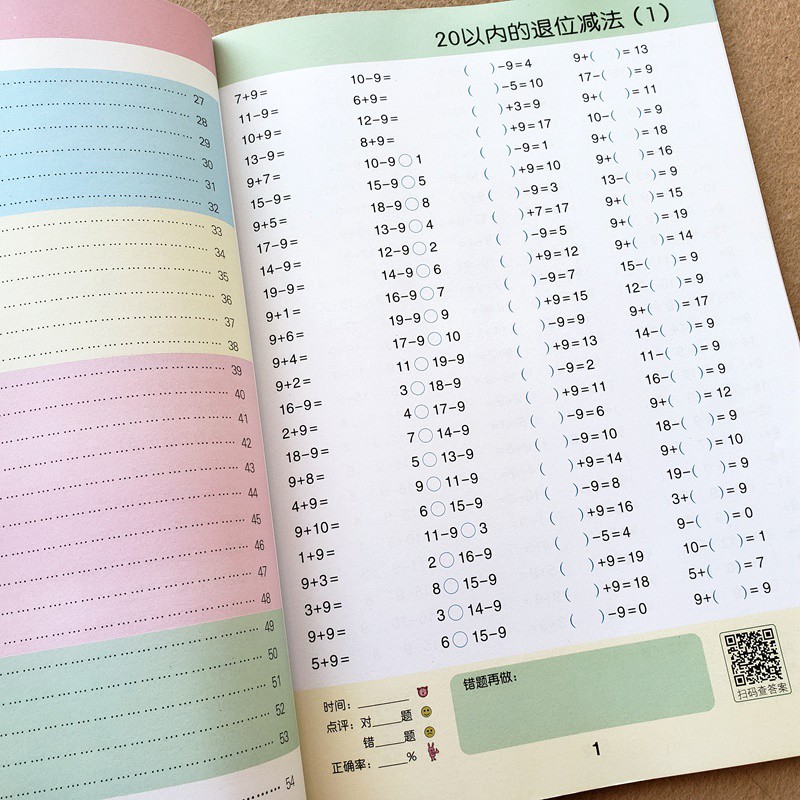 27
28
29
30
31
32
33
34
35
36
37
38
39
40
41
42
43
44
45
46
47
48
49
50
51
52
53
54
20以内的退位减法（1）
7+9=
11-9=
10+9=
13-9=
9+7=
15-9=
9+5=
17-9=
14-9=
19-9=
9+1=
9+6=
9+4=
9+2=
16-9=
2+9=
18-9=
9+8=
4+9=
9+10=
1+9=
9+3=
3+9=
9+9=
5+9=
10-9=
6+9=
12-9=
8+9=
10-9○1
15-9○5
18-9○8
13-9○4
12-9○2
14-9○6
16-9○7
19-9○9
17-9○10
11○19-9
3○18-9
4○17-9
7○14-9
5○13-9
9○11-9
6○15-9
11-9○3
2○16-9
8○15-9
3○14-9
6○15-9
( )-9=4
( )-5=10
( )+3=9
( )+9=17
( )-9=1
( )+9=10
( )-9=3
( )+7=17
( )-9=5
( )+9=12
( )-9=7
( )+9=15
( )-9=9
( )+9=13
( )-9=2
( )+9=11
( )-9=6
( )-9=10
( )+9=14
( )-9=8
( )+9=16
( )-5=4
( )+9=19
( )+9=18
( )-9=0
9+( )=13
17-( )=9
9+( )=11
10-( )=9
9+( )=18
9+( )=16
13-( )=9
9+( )=15
9+( )=19
9+( )=14
15-( )=9
12-( )=9
9+( )=17
14-( )=9
11-( )=9
16-( )=9
9+( )=12
18-( )=9
9+( )=10
19-( )=9
3+( )=9
9-( )=0
10-( )=1
5+( )=7
9+( )=9
时间：______
点评：对____题
错____题
正确率：____%
错题再做：
扫码查答案
1